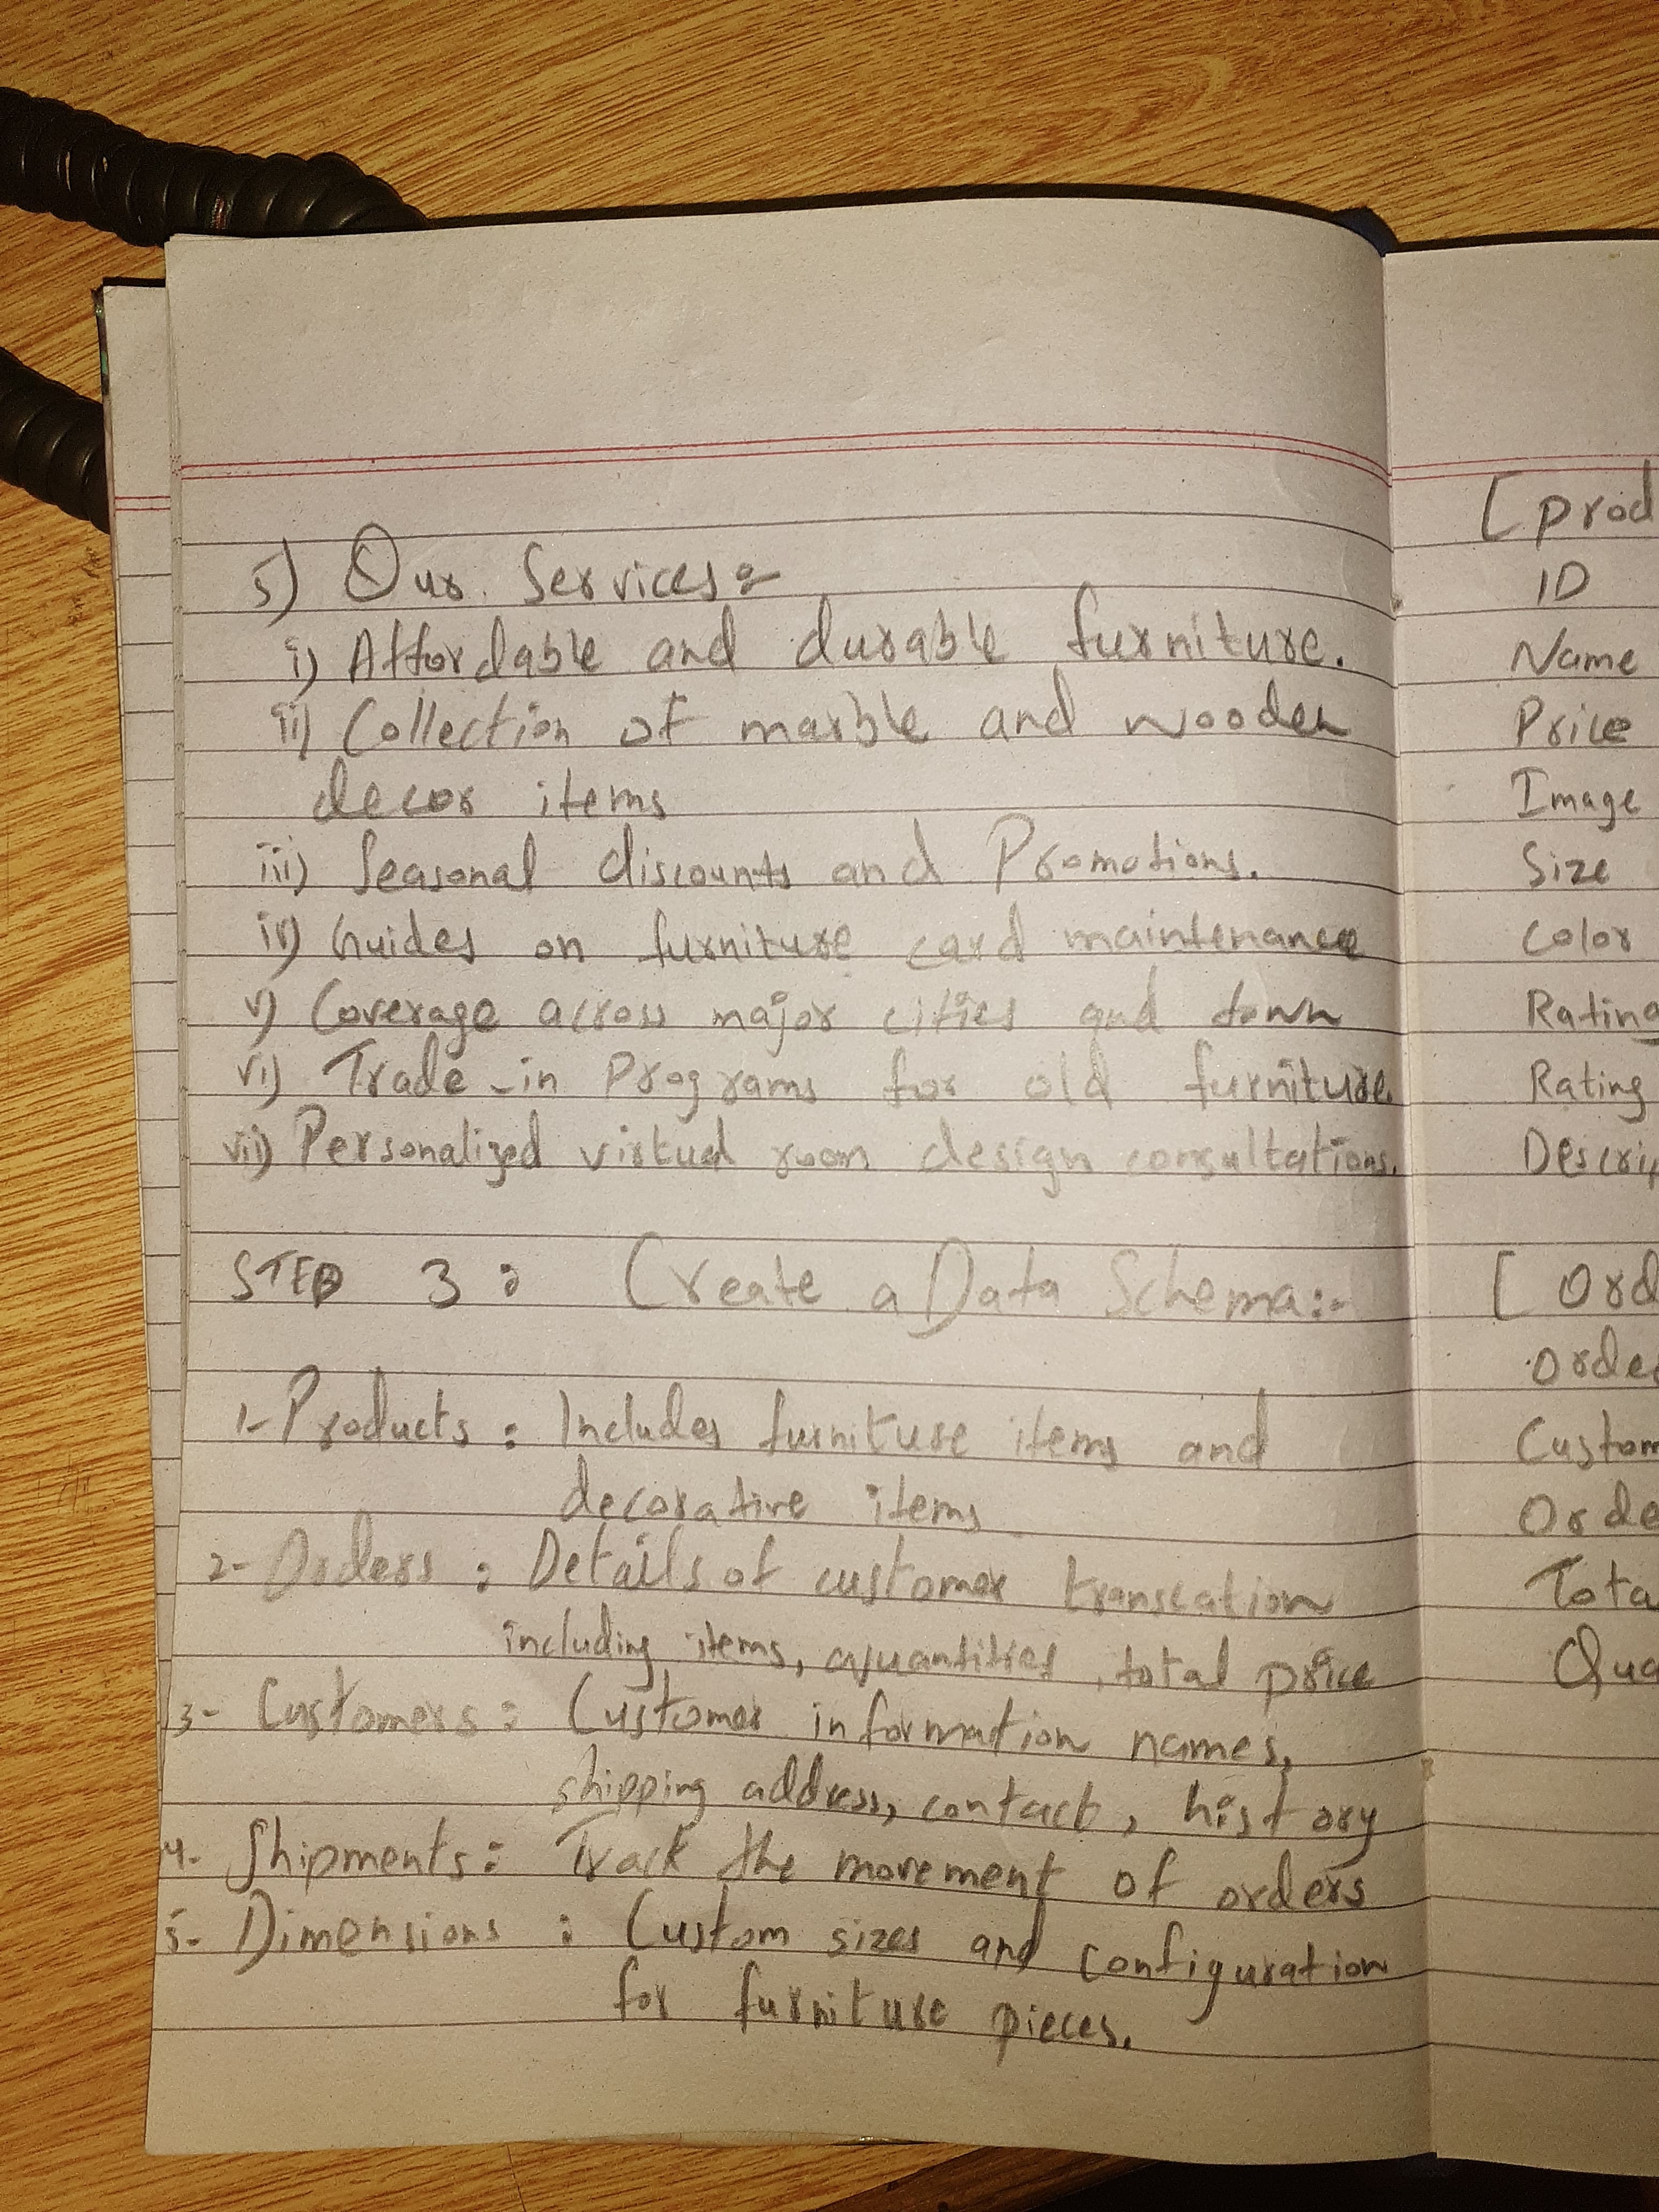 5) Our Services:-
i) Affordable and durable furniture.
ii) Collection of marble and wooden
decor items
iii) Seasonal discounts and Promotions.
iv) Guides on furniture card maintenance
v) Coverage across major cities and town
vi) Trade-in Programs for old furniture.
vii) Personalized virtual room design consultations.
STEP 3: Create a Data Schema:-
1- Products: Includes furniture items and
decorative items
2- Orders: Details of customer transcation
including items, quantities, total price
3- Customers: Customer information names,
shipping address, contact, history
4- Shipments: Track the movement of orders
5- Dimensions: Custom sizes and configuration
for furniture pieces.
[ prod
ID
Name
Price
Image
Size
Color
Rating
Rating
Descrip
[ Ord
Order
Custom
Orde
Tota
Qua